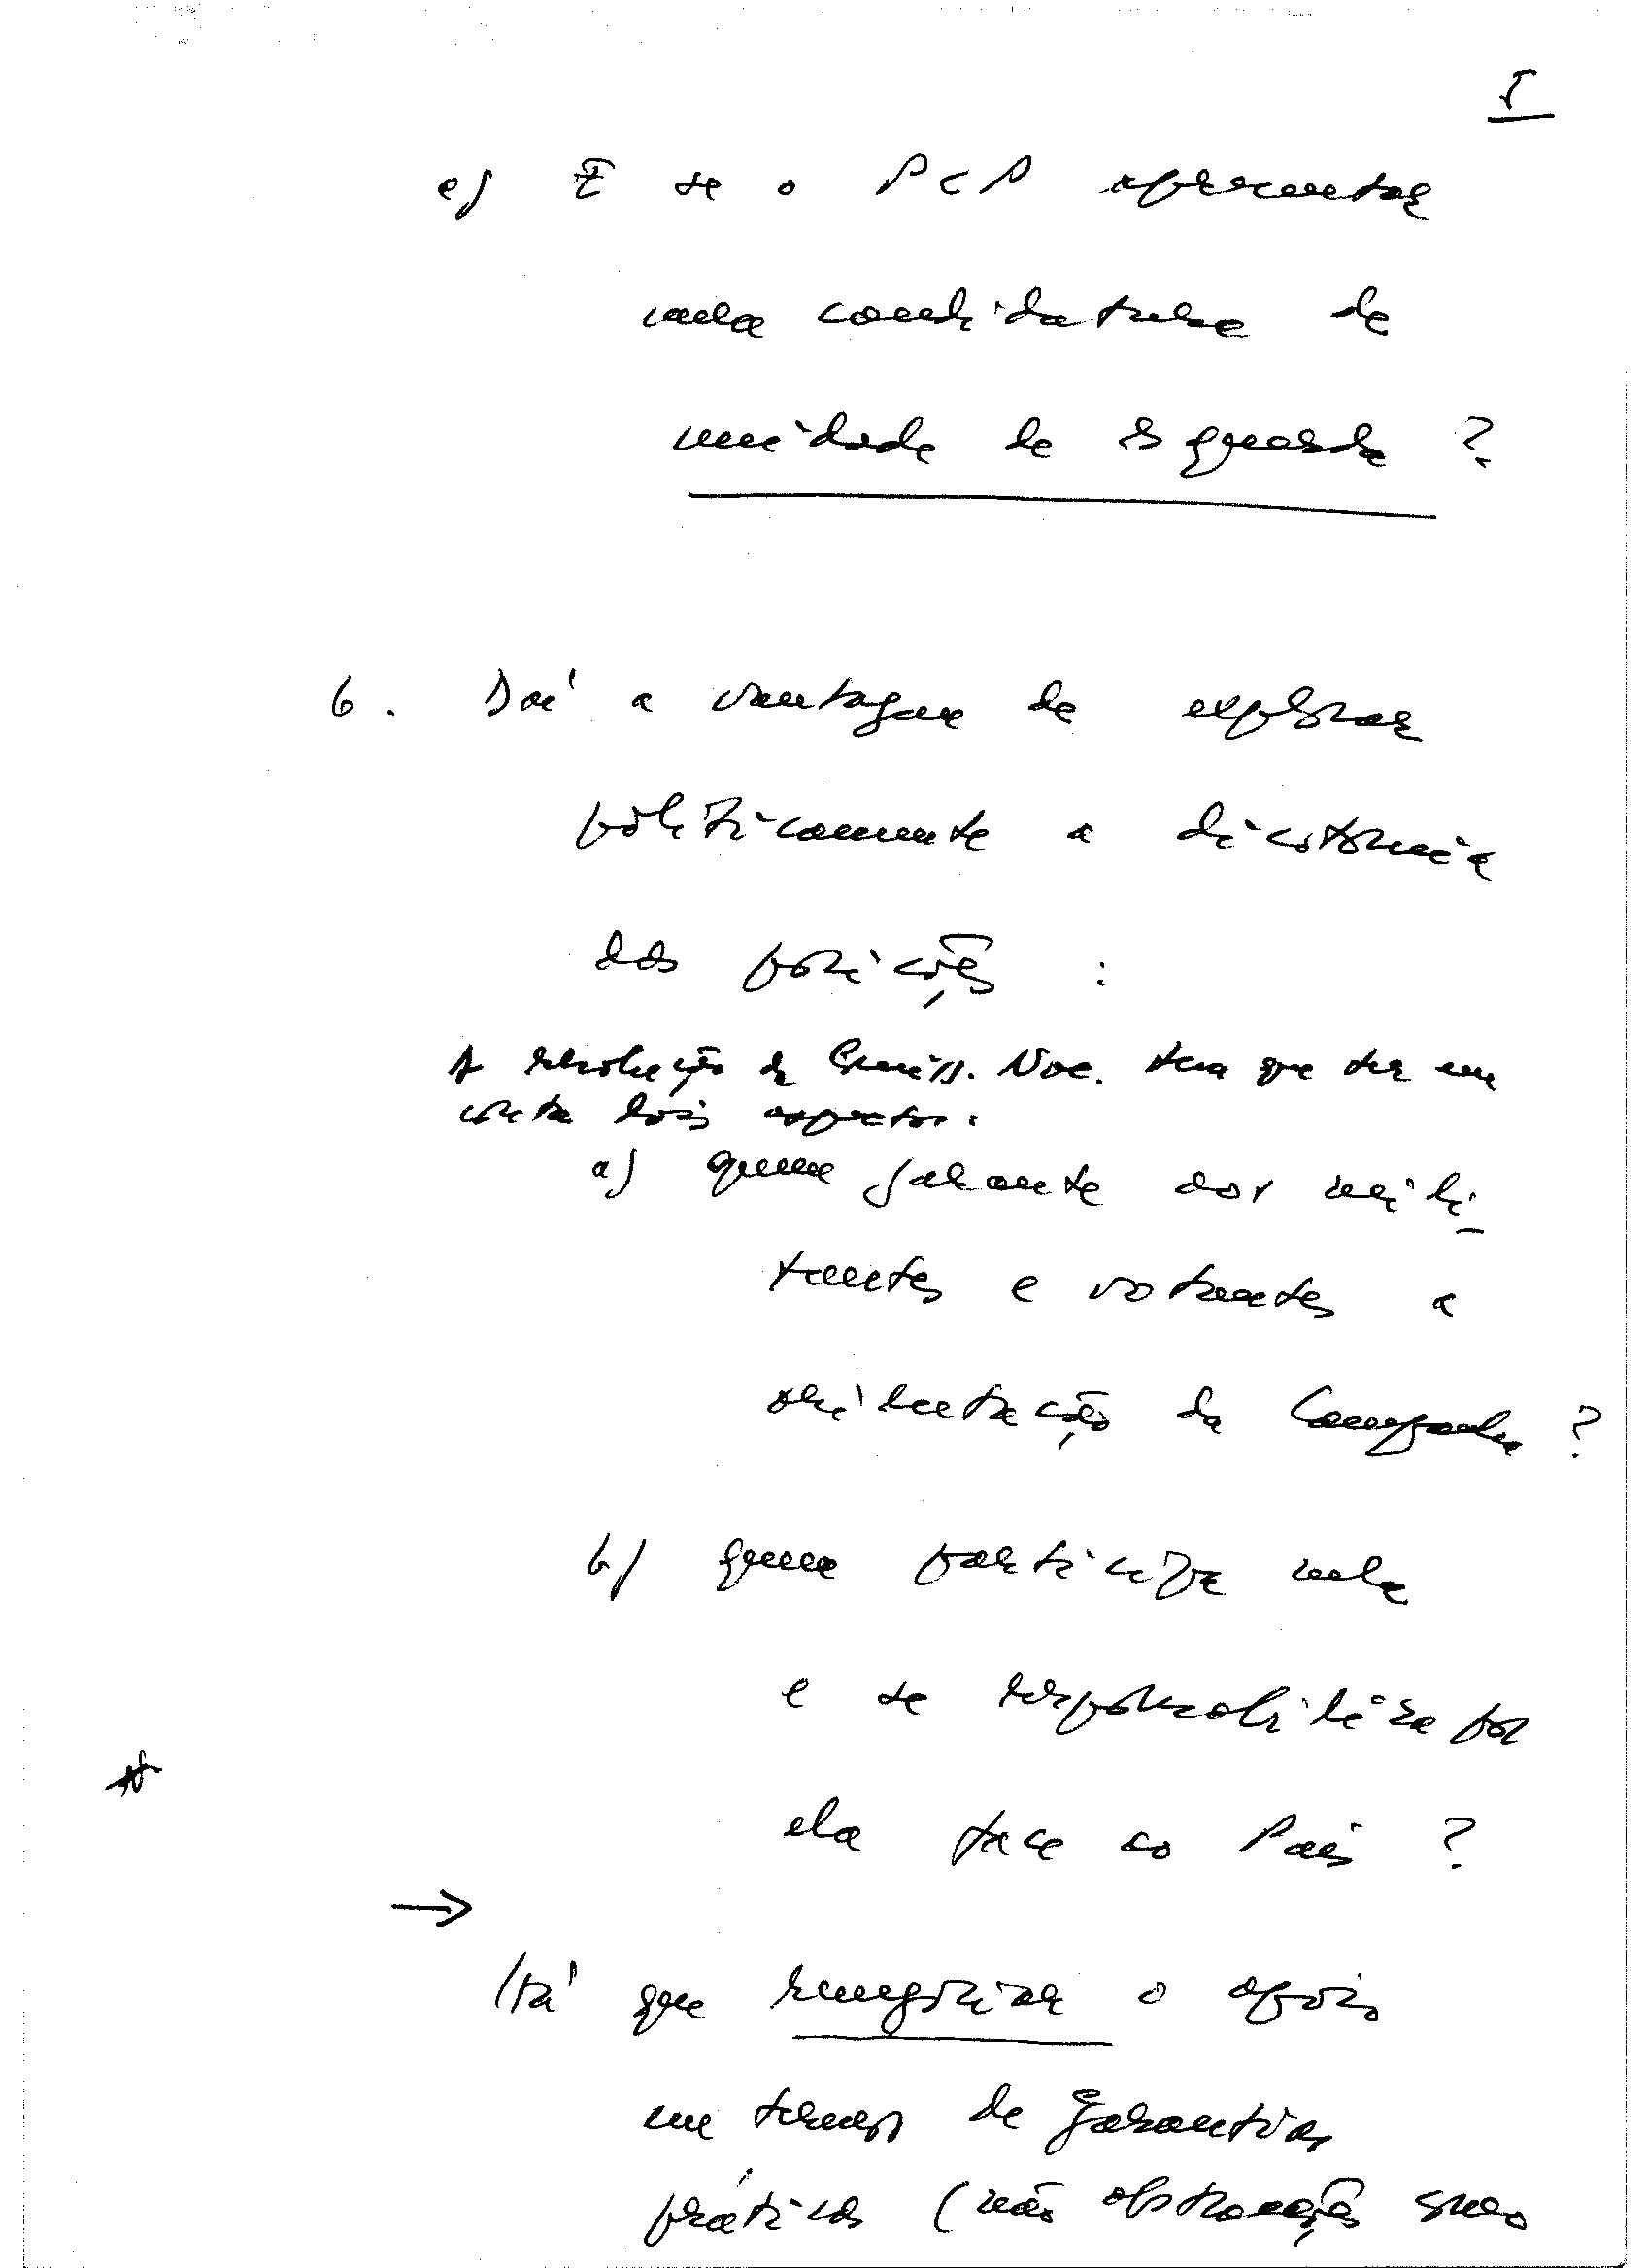 5
e) E se o PCP apresentar
uma candidatura de
unidade de esquerda ?
6. Daí a vantagem de explorar
politicamente a dicotomia
das posições :
A resolução da Comiss. Nac. tem que ter em
conta dois aspectos:
a) quem garante aos mili-
tantes e votantes a
orientação da Campanha ?
b) quem participa nela
e se responsabiliza por
ela face ao País ?
→
Há que renegociar o apoio
em termos de garantias
práticas (não abstracções